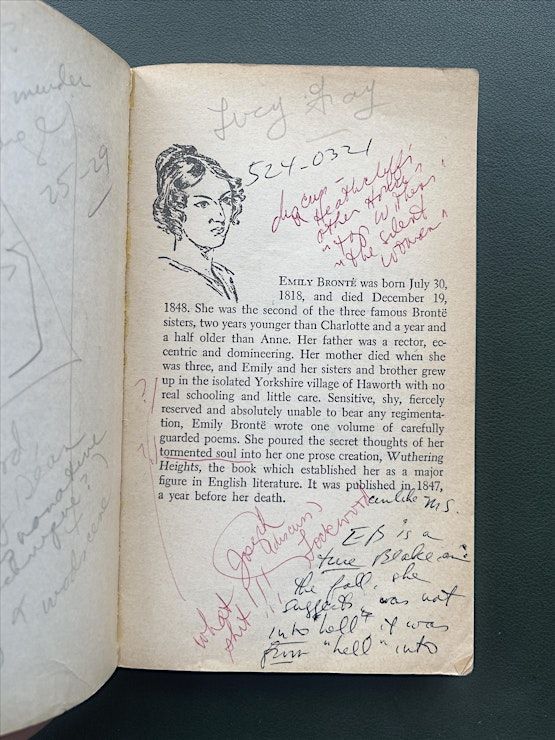 murder
25-29
Lucy Gray
524-0321
discuss -
Heathcliff's
other
"top Withens"
"the silent
women"
EMILY BRONTË was born July 30,
1818, and died December 19,
1848. She was the second of the three famous Brontë
sisters, two years younger than Charlotte and a year and
a half older than Anne. Her father was a rector, ec-
centric and domineering. Her mother died when she
was three, and Emily and her sisters and brother grew
up in the isolated Yorkshire village of Haworth with no
real schooling and little care. Sensitive, shy, fiercely
reserved and absolutely unable to bear any regimenta-
tion, Emily Brontë wrote one volume of carefully
guarded poems. She poured the secret thoughts of her
tormented soul into her one prose creation, Wuthering
Heights, the book which established her as a major
figure in English literature. It was published in 1847,
a year before her death.
?
?
unlike M.S.
Joseph
(discuss)
Lockwood
what
shit!!!
EB is a
true Blakean
the fall, she
suggests, was not
into "hell", it was
from "hell" into
narrative